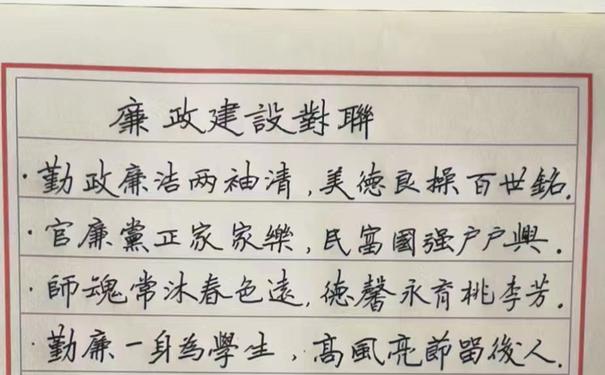 廉政建設對聯
·勤政廉洁两袖清，美德良操百世銘.
·官廉黨正家家樂，民富國强户户興.
·師魂常沐春色遠，德馨永育桃李芳.
·勤廉一身為學生，高風亮節留後人.